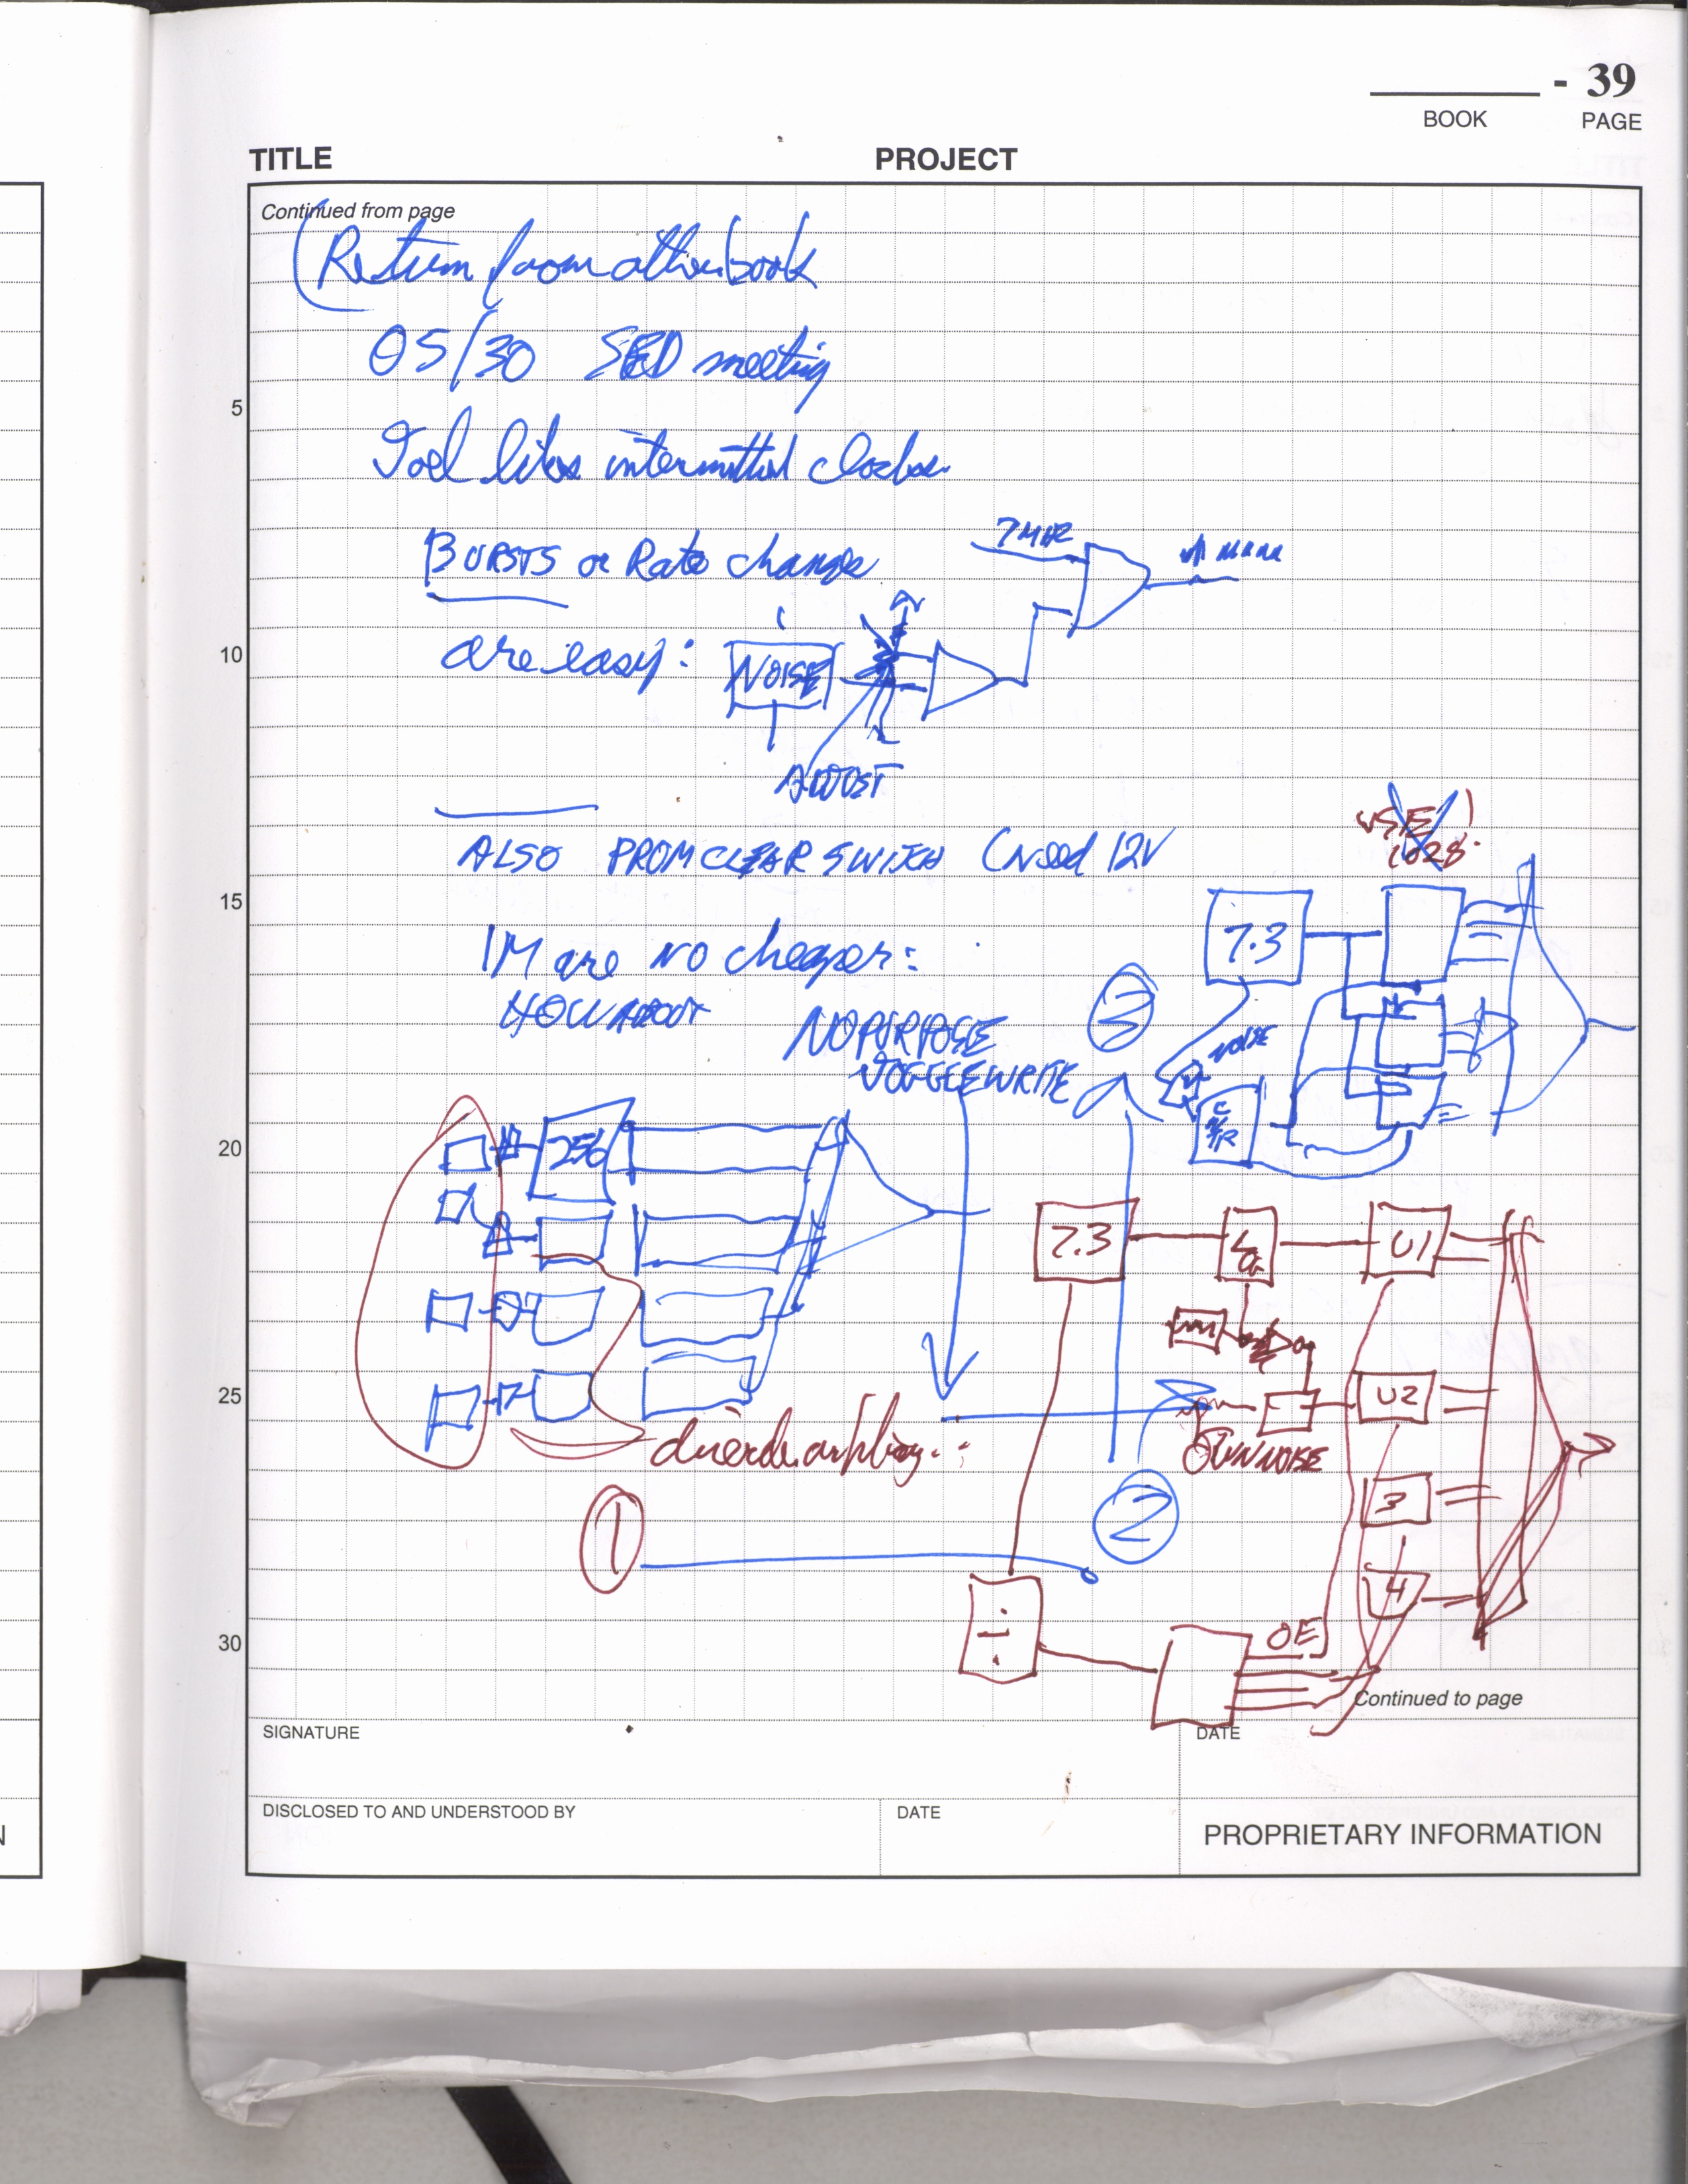 - 39
BOOK PAGE
TITLE PROJECT
Continued from page
(Return from other book
05/30 SED meeting
Joel likes intermittent clocks.
BURSTS or Rate change
7MHZ
are easy:
NOISE
ADJUST
ALSO PROM CLEAR SWITCH (Need 12V
USE
1028
1M are NO cheaper:
HOW ABOUT
NO PURPOSE
TOGGLE WRITE
3
7.3
NOISE
256
7.3
U1
U2
OWN NOISE
3
4
1
2
÷
OE
5
10
15
20
25
30
Continued to page
SIGNATURE DATE
DISCLOSED TO AND UNDERSTOOD BY DATE
PROPRIETARY INFORMATION